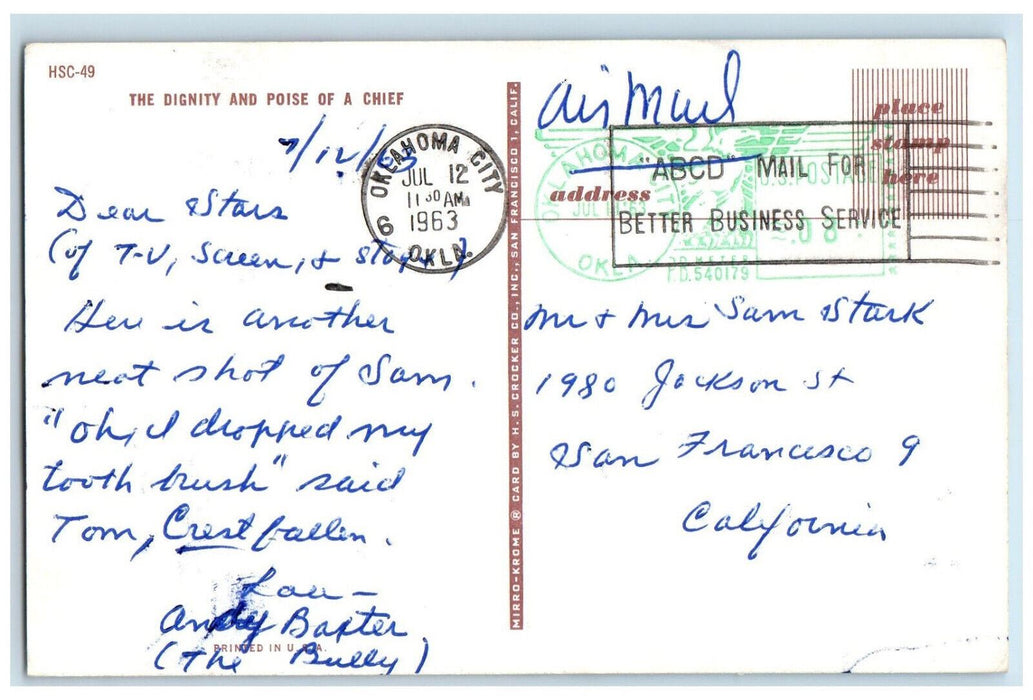 HSC-49
THE DIGNITY AND POISE OF A CHIEF
7/12/63
Dear Stars
(of T-V, Screen, & stage)
Here is another
neat shot of Sam.
"oh, I dropped my
tooth brush" said
Tom, Crest fallen.
Andy Baxter
(The Bully)
PRINTED IN U.S.A.
MIRRO-KROME ® CARD BY H. S. CROCKER CO., INC., SAN FRANCISCO 1, CALIF.
OKLAHOMA CITY
JUL 12
11 30 AM
1963
6
OKLA.
Air Mail
place
stamp
here
address
"ABCD" MAIL FOR
BETTER BUSINESS SERVICE
OKLAHOMA CITY
JUL
OKLA.
U.S. POSTAGE
.08
PB METER
P.B. 540179
Mr & Mrs Sam Stark
1980 Jackson st
San Francisco 9
California